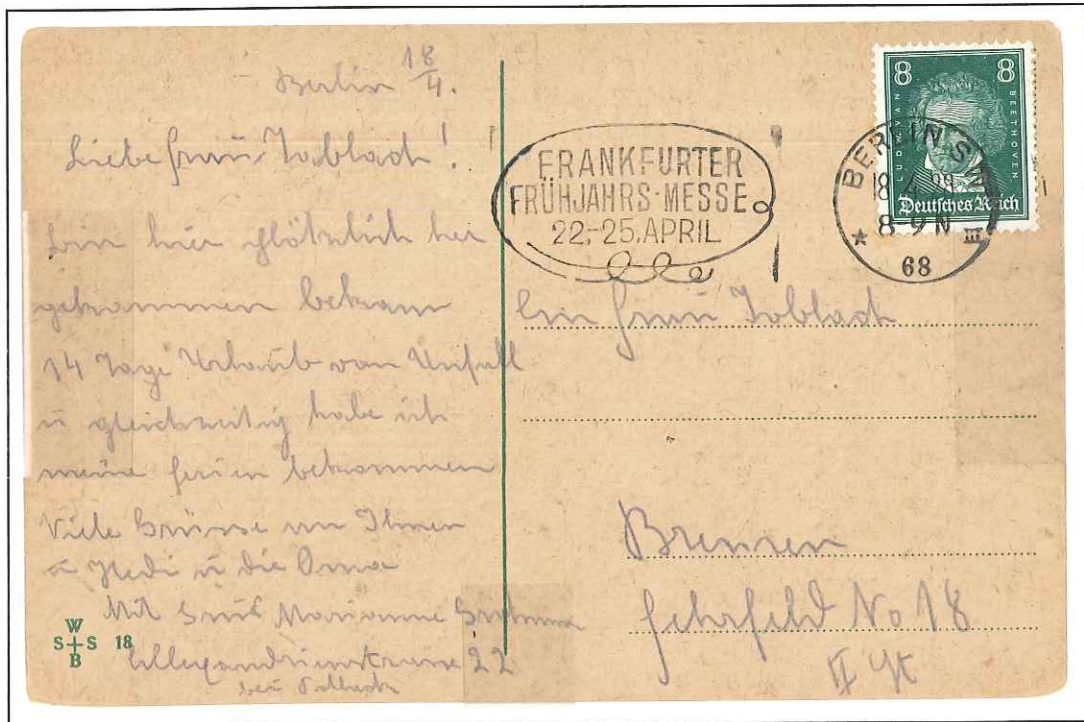 Berlin 18/4.
Liebe Frau Toblach!
bin hier plötzlich her
gekommen bekam
14 Tage Urlaub von Unfall
u gleichzeitig habe ich
meine Ferien bekommen
Viele Grüsse an Ihnen
u Hedi u die Oma
Mit Gruß Marianne
Allexandrinenstrasse 22
bei
W
S+S 18
B
FRANKFURTER
FRÜHJAHRS-MESSE
22.-25. APRIL
8 8
LUDWIG VAN BEETHOVEN
Deutsches Reich
BERLIN SW
18.4.
8-9 N
III
* 68
An Frau Toblach
Bremen
Fehrfeld No 18
II